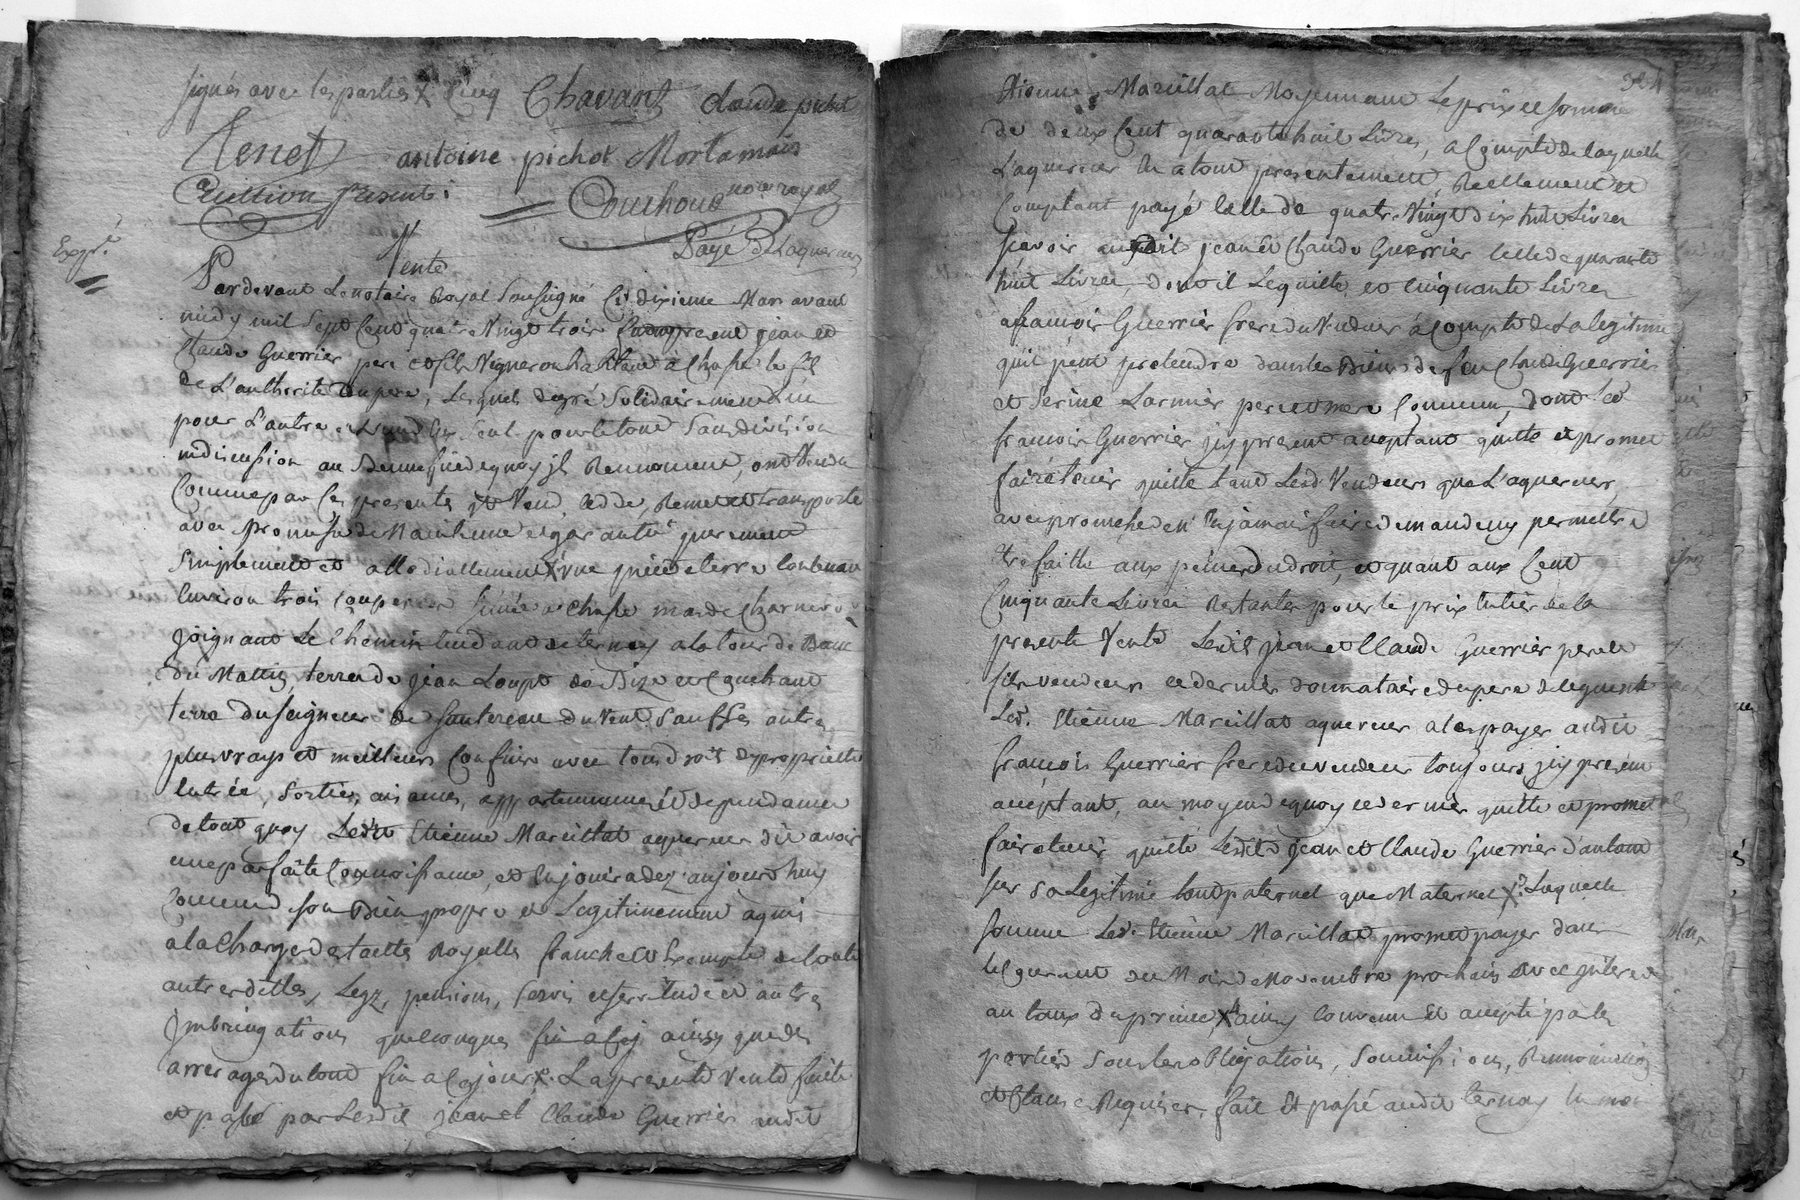 signés avec les parties X Cinq Chavant claude pichot
Tenet antoine pichot Mortamais
Couchoud no.re royal
Payé de laquereur
Expé.
Vente
Pardevant Le notaire Royal Soussigné Ce dixieme Mars avant
midy mil Sept Cent quatre Vingt trois jean et
Claude Guerrier pere et fils Vignerons habitant a Chasse le fil
de L'authorité du pere, Lesquels de gré Solidairement un
pour L'autre et un Seul pour le tout Sans division
ni discussion au Bennefice de quoy jls Rennoncent, ont Vendu
Comme par Ces presentes jls Vend, Cedde, Remet et transporte
avec promesse de Maintenue et garantie purement
Simplement et allodiallement X une piece de terre Contenant
Environ trois Couperées Située a Chasse mas de Charnevo
joignant Le Chemin tendant de ternay a la tour de
du Mattin, terre de jean Loup de Bize et Couchant
terre du seigneur de sautereau du Vent Sauf Ses autres
plus vrays et meilleurs Confins avec tous droits de proprieté
Entrée, Sorties, aisances, appartenances et dependances
de tout quoy Ledit Etienne Mareillat aquereur dit avoir
une parfaite Connoissance, et En jouira dez aujourd'huy
Comme de son Bien propre et Legitimement aquis
a la Charge des tailles Royalles franche et Exempte de toute
autres dettes, Legz, pensions, Servis et servitude et autres
jmbringations quelconques fin a Cej ainsy que des
arrerages du tout fin a Ce jour X. La presente Vente faite
et passé par Lesdit jean et Claude Guerrier audit
324
Etienne Mareillat Moyennant Le prix et somme
de deux Cent quarante huit Livres, a Compte de laquelle
L'aquereur En a tout presentement, Reellement et
Comptant payé Celle de quatre Vingt dix huit Livres
sçavoir auxdits jean et Claude Guerrier Celle de quarante
huit Livres, dont il Le quitte et Cinquante Livres
a francois Guerrier frere du Vendeur a Compte de La legitime
qu'il peut pretendre dans les Biens de feu Claude Guerrier
et Serine Larmier pere et mere Commun, dont led
francois Guerrier jcy present aceptant quitte et promet
faire tenir quitte tant Lesd Vendeurs que L'aquereur
avec promesse de n'En jamais faire demande ny permettre
Etre faitte aux peines du droit, et quant aux Cent
Cinquante Livres Restantes pour le prix Entier de la
presente Vente Lesdit jean et Claude Guerrier pere et
fils vendeurs ce dernier donnataire du pere deleguent
Led. Etienne Mareillat aquereur a les payer audit
francois Guerrier frere du vendeur toujours jcy present
aceptant, au moyen de quoy ce dernier quitte et promet
faire tenir quitte Lesdits jean et Claude Guerrier d'autant
sur Sa Legitime tant paternel que Maternel X. Laquelle
somme Led. Etienne Mareillat promet payer dans
le Courant du Mois de Novembre prochain avec jnterets
au taux du prince X ainsy Convenu Et acepté par les
parties Sous leurs Obligations, Soumissions, Rennonciations
et Clauses Requises, fait Et passé audit ternay En mon